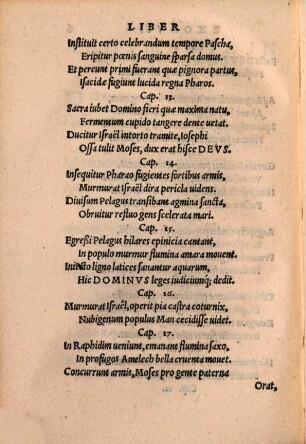 LIBER
Instituit certo celebrandum tempore Pascha,
Eripitur pœnis sanguine sparsa domus.
Et pereunt primi fuerant quæ pignora partus,
Isacidæ fugiunt lucida regna Pharos.
Cap. 13.
Sacra iubet Domino fieri quæ maxima natu,
Fermentum cupido tangere dente uetat.
Ducitur Israël intorto tramite, Iosephi
Ossa tulit Moses, dux erat hisce DEVS.
Cap. 14.
Insequitur Pharao fugientes fortibus armis,
Murmurat Israël dira pericla uidens.
Diuisum Pelagus transibat agmina sancta,
Obruitur refluo gens scelerata mari.
Cap. 15.
Egreßi Pelagus hilares epinicia cantant,
In populo murmur flumina amara mouent.
Iniecto ligno latices sanantur aquarum,
Hic DOMINVS leges iudiciumq; dedit.
Cap. 16.
Murmurat Israël, operit pia castra coturnix,
Nubigenum populus Man cecidisse uidet.
Cap. 17.
In Raphidim ueniunt, emanant flumina saxo,
In profugos Amelech bella cruenta mouet.
Concurrunt armis, Moses pro gente paterna
Orat,